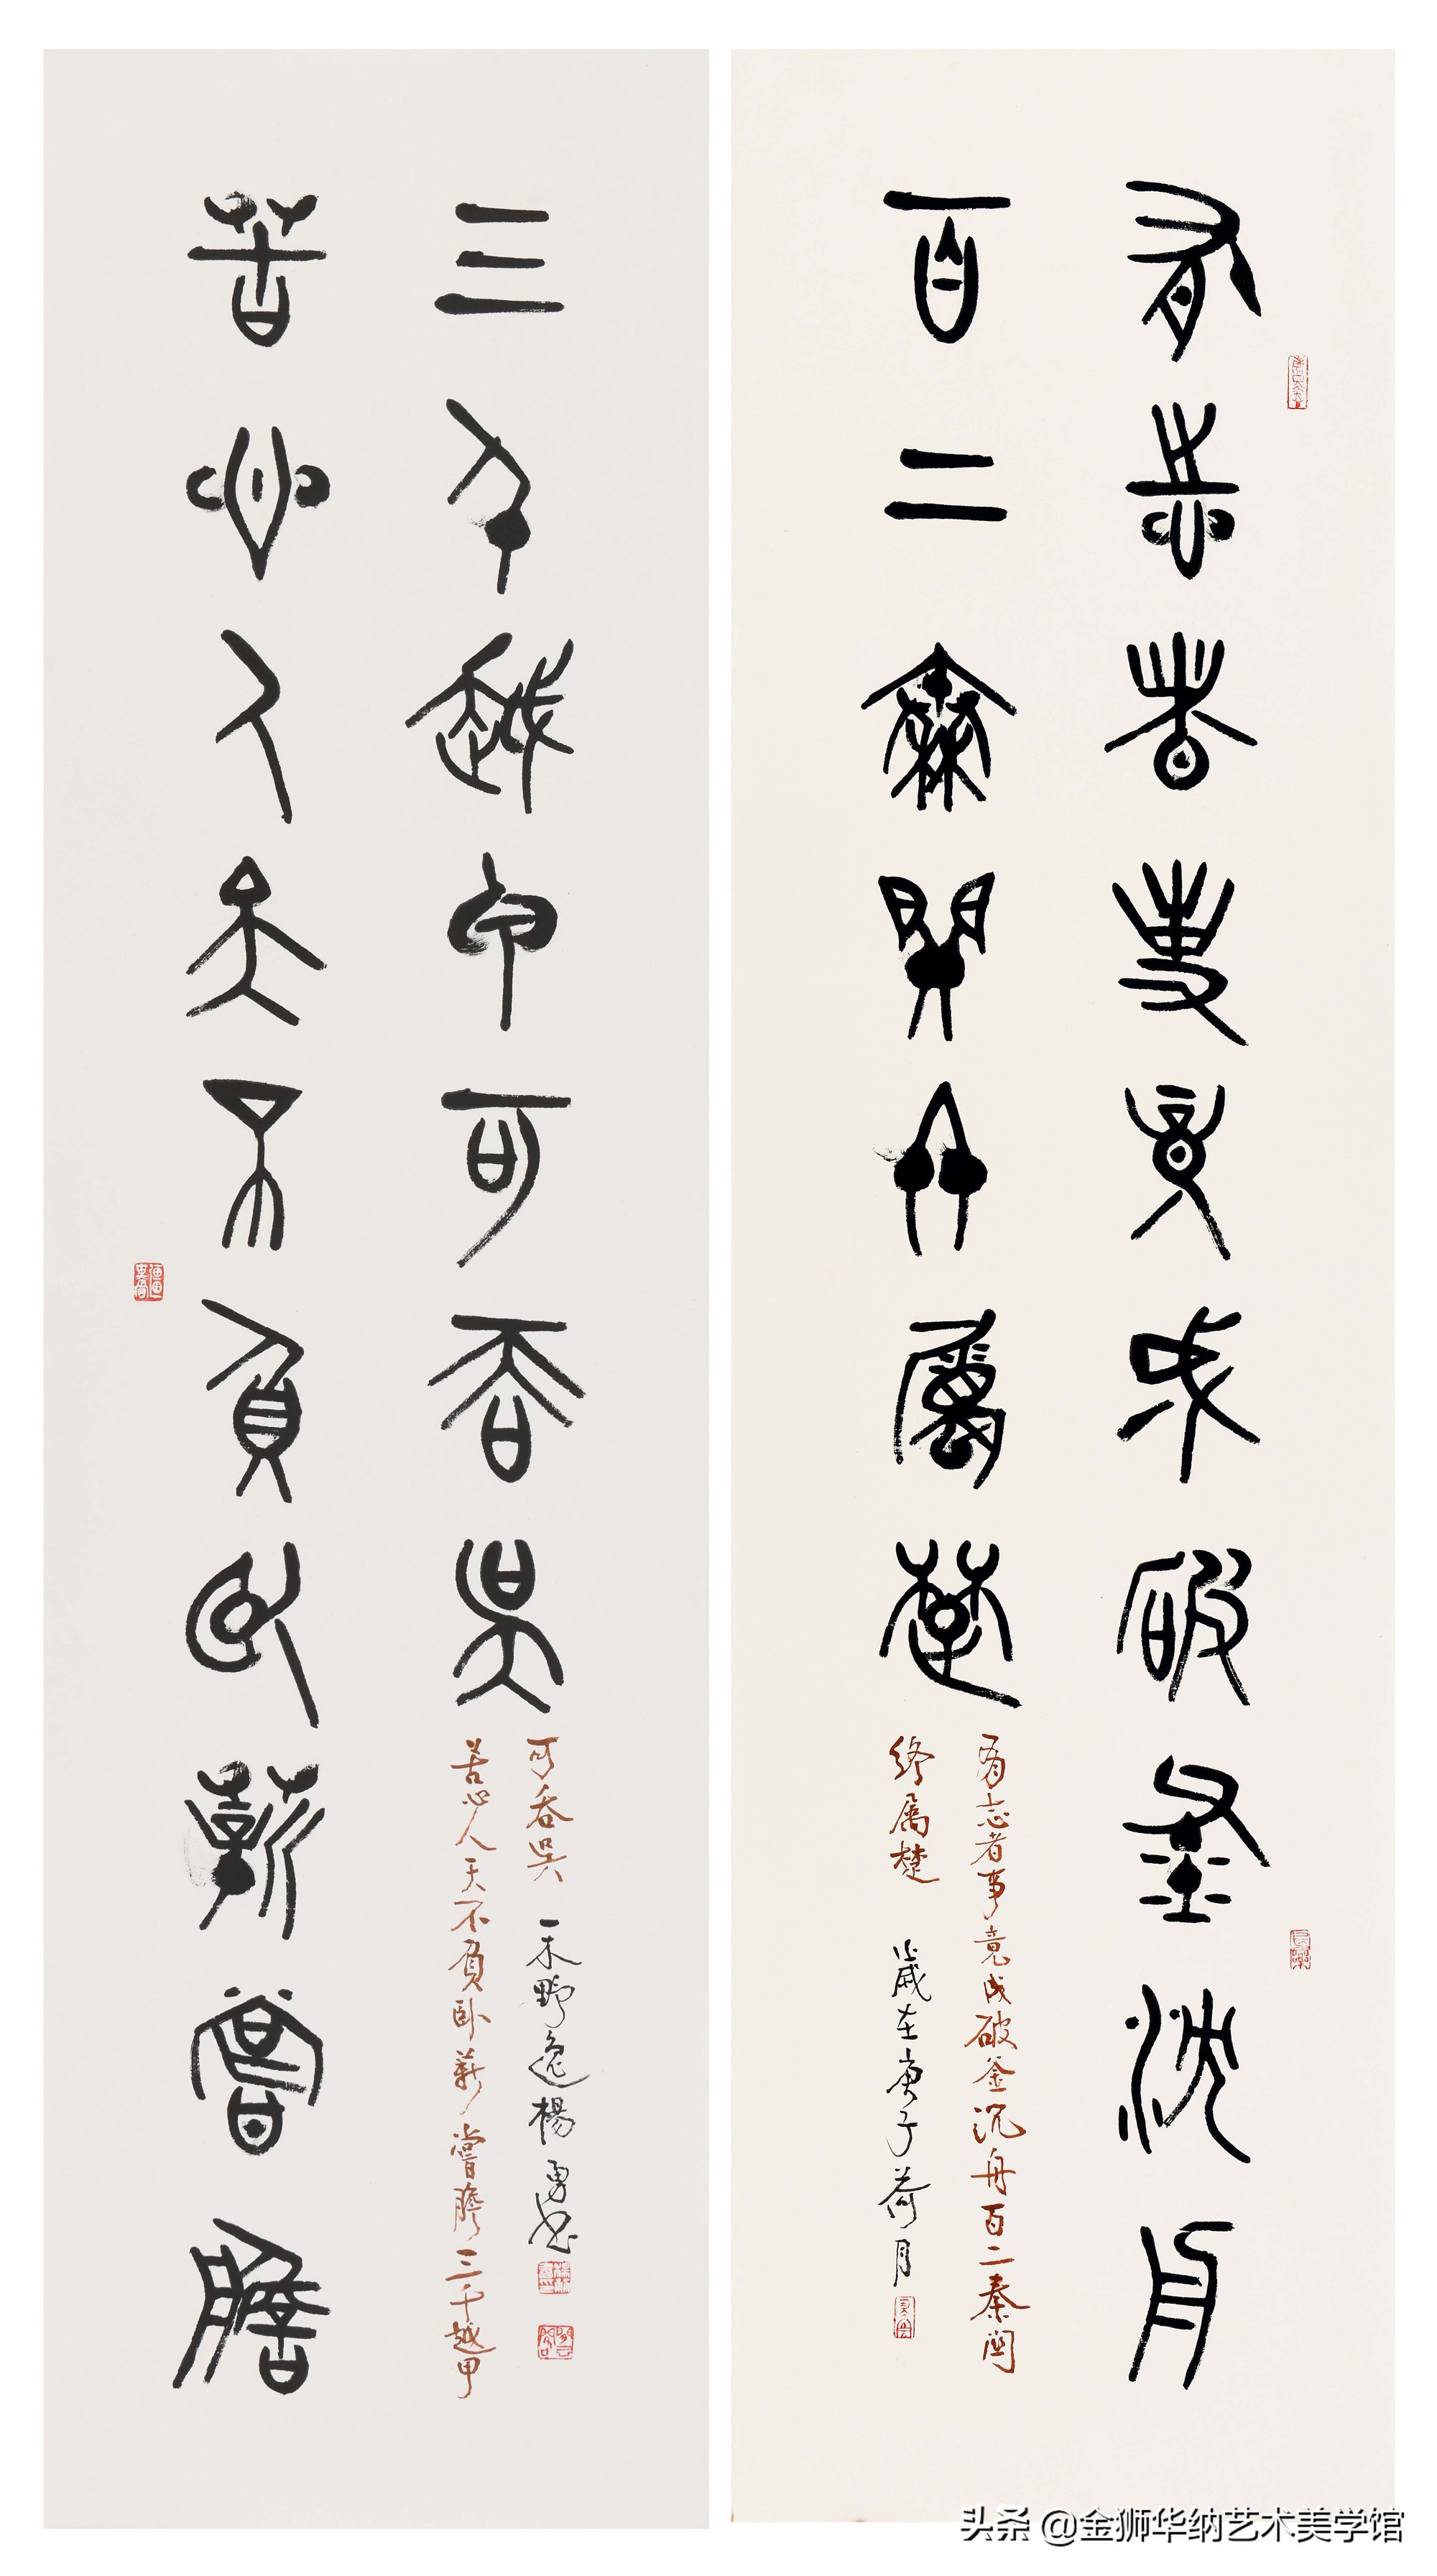 有志者事竟成破釜沈舟
百二秦關終屬楚
有志者事竟成破釜沉舟百二秦関
終属楚 歲在庚子荷月
苦心人天不負臥薪嘗膽
三千越甲可吞吳
苦心人天不負卧薪嘗膽三千越甲
可吞吳 野逸楊勇書
头条 @金狮华纳艺术美学馆